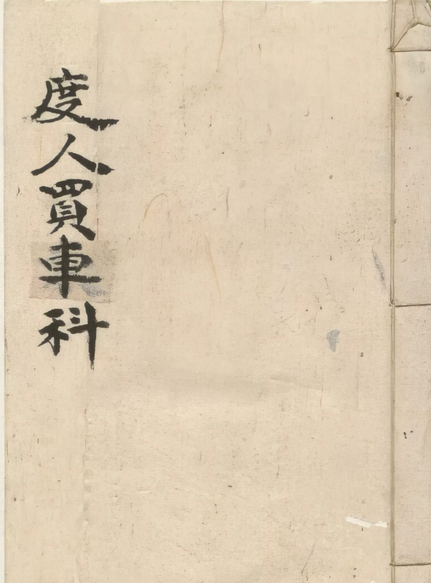 度人買車科